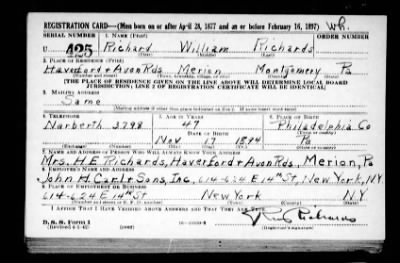 REGISTRATION CARD—(Men born on or after April 28, 1877 and on or before February 16, 1897)
SERIAL NUMBER 1. NAME (Print) ORDER NUMBER
U 425 Richard William Richards
2. PLACE OF RESIDENCE (Print)
Haverford + Avon Rds. Merion Montgomery Pa
[THE PLACE OF RESIDENCE GIVEN ON THE LINE ABOVE WILL DETERMINE LOCAL BOARD
JURISDICTION; LINE 2 OF REGISTRATION CERTIFICATE WILL BE IDENTICAL]
3. MAILING ADDRESS
Same
4. TELEPHONE 5. AGE IN YEARS 6. PLACE OF BIRTH
Narberth 3298 47 Philadelphia Co
DATE OF BIRTH
Nov 17 1894 Pa
7. NAME AND ADDRESS OF PERSON WHO WILL ALWAYS KNOW YOUR ADDRESS
Mrs. H E Richards, Haverford + Avon Rds, Merion, Pa
8. EMPLOYER'S NAME AND ADDRESS
John H. Carl + Sons, Inc, 614-624 E 14th St, New York, N.Y.
9. PLACE OF EMPLOYMENT OR BUSINESS
614-624 E 14th St New York NY
I AFFIRM THAT I HAVE VERIFIED ABOVE ANSWERS AND THAT THEY ARE TRUE.
D. S. S. Form 1
(Revised 4-1-42)
Richards
(Registrant's signature)